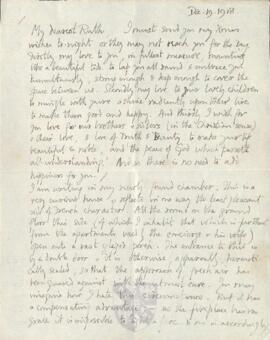 Dec. 19. 1918
My dearest Ruth I must send you my Xmas
wishes to-night or they may not reach you for the day.
Firstly my love to you, in fullest measure, bounding
like a beautiful tide to lap you all round & embrace you
triumphantly, strong enough & deep enough to cover the
space between us. Secondly my love to your lovely children
to mingle with yours & shine radiantly upon their lives
to make them good and happy. And thirdly I wish for
you love for our brothers & sisters (in the Christian sense)
& clear love, & love of truth & Beauty to make your life
beautiful & noble, and the peace of God which passeth
all understanding. And so there is no need to add
happiness for you!
I am writing in my newly found chamber. This is a
very curious house & reflects in no way the least pleasant
side of French character. All the rooms on the ground
floor this side of which I inhabit that which is farthest
from the apartments used by the concierge & his wife
open onto a vast glazed porch. The entrance to this is
by a double door. It is otherwise, apparently, hermeti-
cally sealed, so that the approach of fresh air has
been guarded against with the utmost care. You may
imagine how I hate this circumstance. But it has
a compensating advantage as the fireplace has no
grate it is impossible to